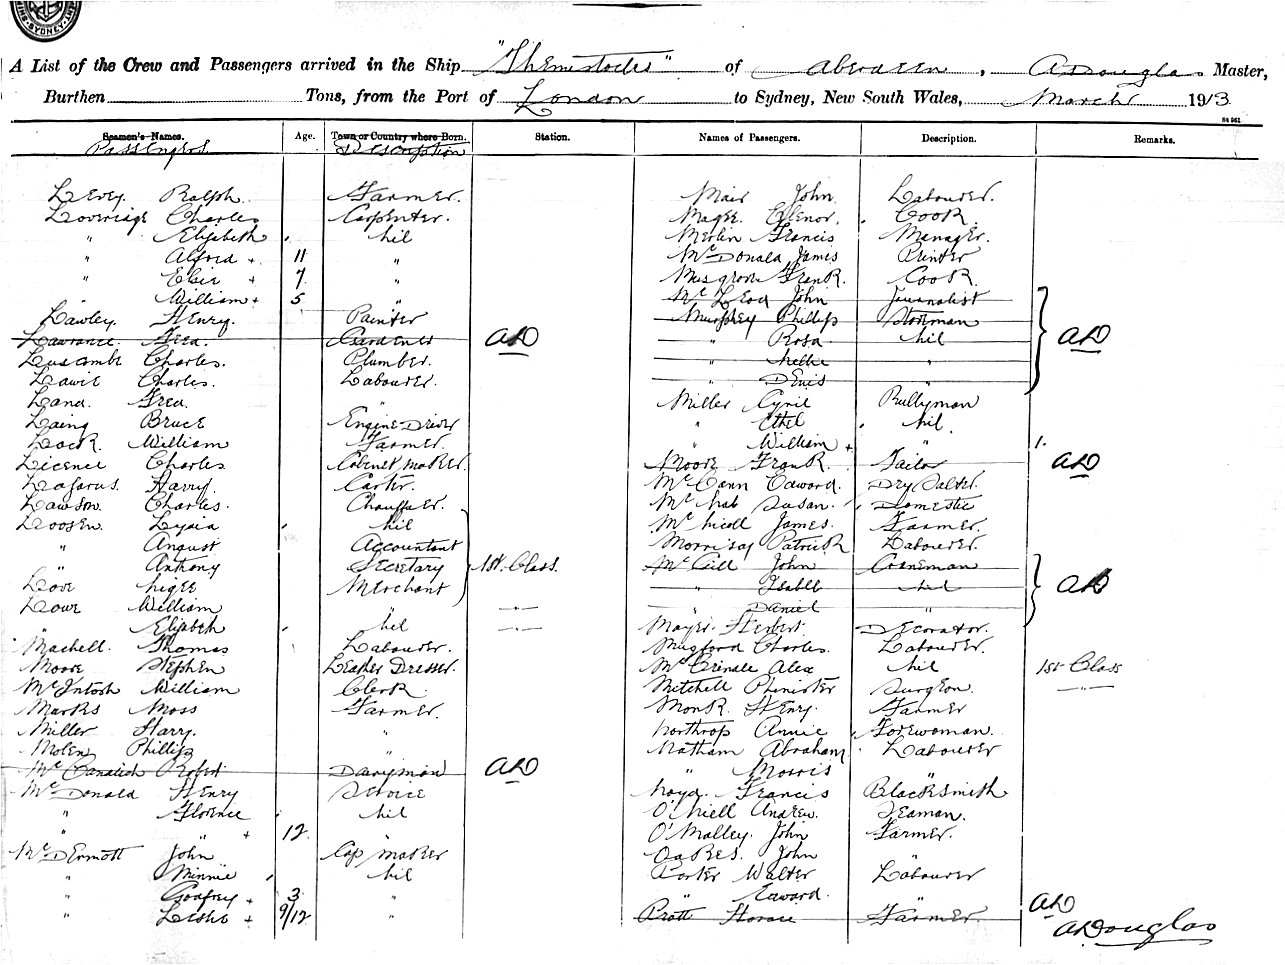 SYDNEY
A List of the Crew and Passengers arrived in the Ship "Themistocles" of Aberdeen, A Douglas Master,
Burthen Tons, from the Port of London to Sydney, New South Wales, March 1913
Seamen's Names. Age. Town or Country where Born. Station. Names of Passengers. Description. Remarks.
Passengers Description
Levey Ralph Farmer.
Loveridge Charles Carpenter.
" Elizabeth nil
" Alfred + 11 "
" Elsie + 7 "
" William + 5 "
Lawley. Henry. Painter
Lawrance. Fred. Gardener AD
Luscombe Charles. Plumber.
Lawie Charles. Labourer.
Land. Fred. "
Laing Bruce Engine Driver
Lock William Farmer.
Licence Charles Cabinet maker.
Lazarus. Harry. Carter.
Lawson. Charles. Chauffeur.
Loosen. Lydia nil
" August Accountant
" Anthony Secretary 1st. Class.
Love Merchant
Lowe William " "
" Elizabeth nil "
Machell. Thomas Labourer.
Moore Stephen Leather Dresser.
McIntosh William Clerk
Marks Moss Farmer.
Miller Harry. "
Molen Phillip "
Robert Dairyman AD
McDonald Henry Service
" Florence nil
" " + 12 "
McDermott John Cap maker
" Minnie nil
" Godfrey + 3 "
" Leslie + 9/12 "
Mair John Labourer.
Magee Elenor. Cook
Merlin Francis Manager.
McDonald James Printer
Musgrove Frank. Cook
McLeod John Journalist
Murphey Phillip Storeman
" Rosa nil AD
" Nellie "
" Denis "
Miller Cyril Bullyman
" Ethel nil
" William + " 1.
Moore Frank. Tailor AD
McCann Edward. Dry Salter.
McNab Susan. Domestic
McNicoll James. Farmer.
Morrisay Patrick Labourer.
McGill John Craneman
" Isabell nil AD
" Daniel "
Mayer Herbert Decorator.
Mugford Charles. Labourer.
Alex nil 1st Class
Mitchell Surgeon. "
Monk Henry. Farmer
Northrop Annie Forewoman.
Natham Abraham Labourer
" Morris "
Francis Blacksmith
O'Niell Andrew. Seaman.
O'Malley. John Farmer.
Oakes. John "
Porter Walter Labourer
" Edward. "
Pratt Horace Farmer. AD
A Douglas